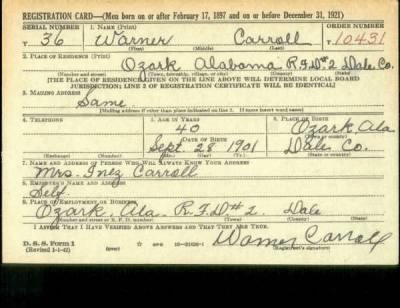 REGISTRATION CARD—(Men born on or after February 17, 1897 and on or before December 31, 1921)
SERIAL NUMBER 1. NAME (Print) ORDER NUMBER
T 36 Warner Carroll T 10431
(First) (Middle) (Last)
2. PLACE OF RESIDENCE (Print)
Ozark Alabama R.F.D#2 Dale Co.
(Number and street) (Town, township, village, or city) (County) (State)
[THE PLACE OF RESIDENCE GIVEN ON THE LINE ABOVE WILL DETERMINE LOCAL BOARD
JURISDICTION; LINE 2 OF REGISTRATION CERTIFICATE WILL BE IDENTICAL]
3. MAILING ADDRESS
Same
[Mailing address if other than place indicated on line 2. If same insert word same]
4. TELEPHONE 5. AGE IN YEARS 6. PLACE OF BIRTH
40 Ozark, Ala
DATE OF BIRTH (Town or county)
Sept. 28 1901 Dale Co.
(Exchange) (Number) (Mo.) (Day) (Yr.) (State or country)
7. NAME AND ADDRESS OF PERSON WHO WILL ALWAYS KNOW YOUR ADDRESS
Mrs. Inez Carroll
8. EMPLOYER'S NAME AND ADDRESS
Self
9. PLACE OF EMPLOYMENT OR BUSINESS
Ozark, Ala. R.F.D#2. Dale
(Number and street or R. F. D. number) (Town) (County) (State)
I AFFIRM THAT I HAVE VERIFIED ABOVE ANSWERS AND THAT THEY ARE TRUE.
D. S. S. Form 1
(Revised 1-1-42) Warner Carroll
(Registrant's signature)